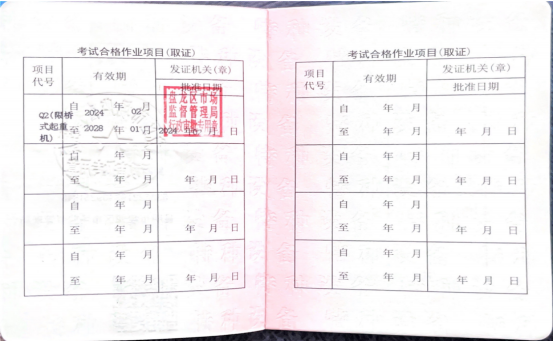 考试合格作业项目(取证)
项目代号
有效期
发证机关(章)
批准日期
Q2(限桥式起重机)
自 2024 年 02 月
至 2028 年 01 月
盘龙区市场
监督管理局
2024 年 月 日
自 年 月
至 年 月
年 月 日
自 年 月
至 年 月
年 月 日
自 年 月
至 年 月
年 月 日
考试合格作业项目(取证)
项目代号
有效期
发证机关(章)
批准日期
自 年 月
至 年 月
年 月 日
自 年 月
至 年 月
年 月 日
自 年 月
至 年 月
年 月 日
自 年 月
至 年 月
年 月 日